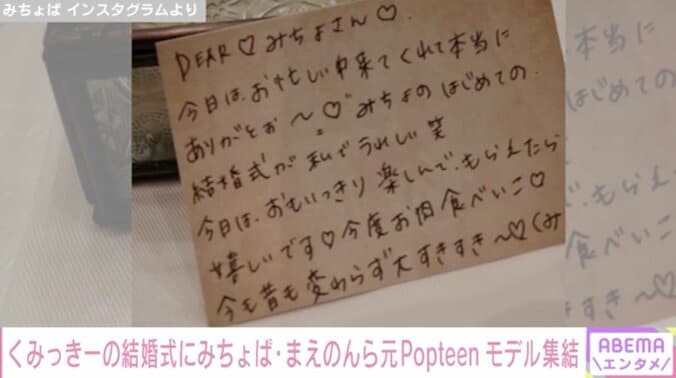 みちょぱ インスタグラムより
DEAR♡みちょさん♡.
今日は、お忙しい中来てくれて本当に
ありがとお〜♡みちょのはじめての.
結婚式が私でうれしい笑
今日は、おもいっきり楽しんで、もらえたら
嬉しいです♡今度お肉食べいこ♡
今も昔も変わらず大すきすき〜♡(み
本当に
はじめての
、もらえたら
食べいこ♡
〜♡(み
くみっきーの結婚式にみちょぱ・まえのんら元Popteen モデル集結
ABEMA
エンタメ